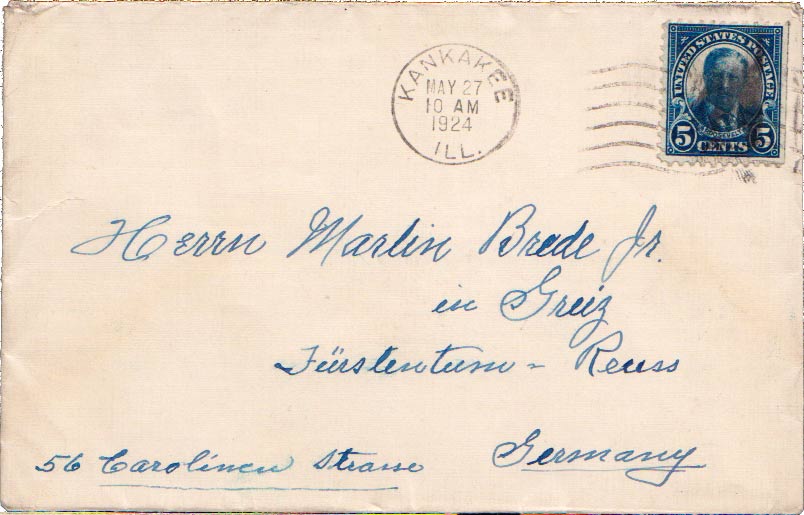 KANKAKEE
MAY 27
10 AM
1924
ILL.
UNITED STATES POSTAGE
ROOSEVELT
5 CENTS 5
Herrn Martin Brede Jr.
in Greiz
Fürstentum - Reuss
56 Carolinen Strasse Germany